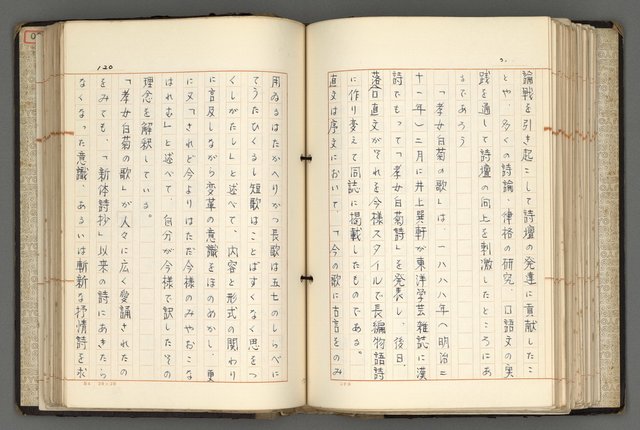 論戦を引き起こして詩壇の発達に貢献したこ
とや、多くの詩論・律格の研究、口語文の実
践を通して詩壇の向上を刺激したところにあ
るであろう
「孝女白菊の歌」は、一八八八年(明治二
十一年)二月に井上巽軒が東洋学芸雑誌に漢
詩でもって「孝女白菊詩」を発表し、後日、
落合直文がそれを今様スタイルで長編物語詩
に作り変えて同誌に掲載したものである。
直文は序文において、「今の歌に古言をのみ
120
用ゐるはたかへりかつ長歌は五七のしらべに
てうたひくるし短歌はことばすくなく思をつ
くしがたし」と述べて、内容と形式の関わり
に言及しながら変革の意識をほのめかし、更
に又「されど今よりはただ今様のみやおこな
はれむ」と述べて、自分が今様で訳したその
理念を解釈している。
「孝女白菊の歌」が人々に広く愛誦されたの
をみても、「新体詩抄」以来の詩にあきたら
なくなった意識、あるいは斬新な抒情詩を求